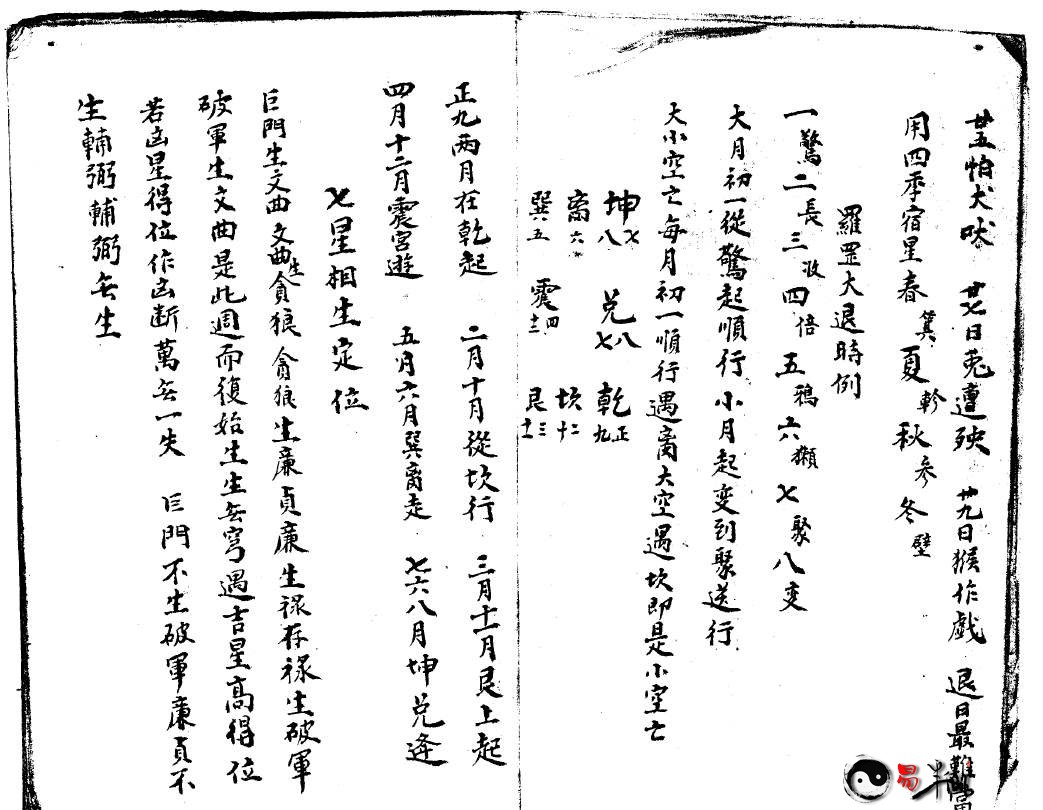 廿五怕犬吠 廿七日兎遭殃 廿九日猴作戲 退日最難當
用四季宿星春箕夏軫秋参冬壁
羅罡大退時例
一驚二長三收四倍五鴉六獺七聚八变
大月初一從驚起順行小月起变到聚送行
大小空亡每月初一順行遇离大空遇坎即是小空亡
坤七八 兑八七 乾正九
离六 坎十二
巽五 震四十二 艮三十一
正九两月在乾起 二月十月從坎行 三月十一月艮上起
四月十二月震宫遊 五月六月巽离走 七六八月坤兑逢
七星相生定位
巨門生文曲文曲生貪狼貪狼生廉貞廉生禄存禄生破軍
破軍生文曲是此週而復始生生无穹遇吉星高得位
若凶星得位作凶断萬无一失 巨門不生破軍廉貞不
生輔弼輔弼无生
易